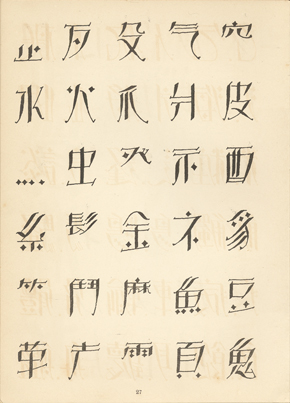 止歹殳气穴
水火爪爿皮
灬虫癶示酉
糸髟金礻豸
⺮鬥麻魚豆
革雨頁鬼
27